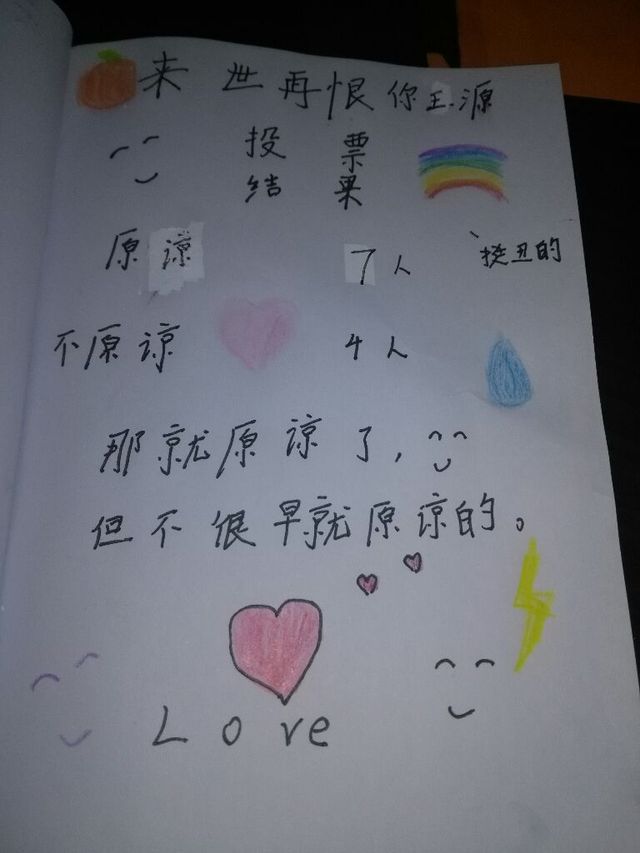 来世再恨你王源
投票
结果
原谅 7人 挺丑的
不原谅 4人
那就原谅了,
但不很早就原谅的。
Love